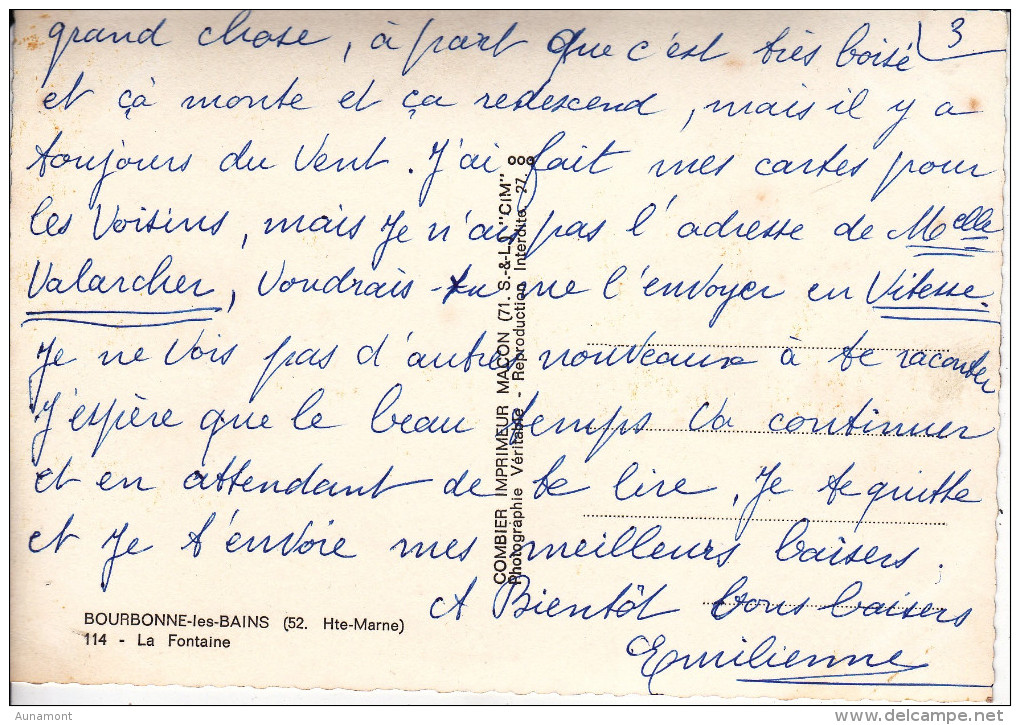 3
grand chose, à part que c'est très boisé
et çà monte et ça redescend, mais il y a
toujours du Vent. J'ai fait mes cartes pour
les Voisins, mais Je n'ais pas l'adresse de Melle
Valarcher, Voudrais-tu me l'envoyer en Vitesse.
Je ne Vois pas d'autres nouveaux à te raconter
J'espère que le beau temps va continuer
et en attendant de te lire, Je te quitte
et Je t'envoie mes meilleurs baisers.
A Bientôt bons baisers
Emilienne
COMBIER IMPRIMEUR MACON (71. S.-&-L.) "CIM"
Photographie Véritable - Reproduction Interdite 27.
BOURBONNE-les-BAINS (52. Hte-Marne)
114 - La Fontaine
Aunamont
delcampe.net